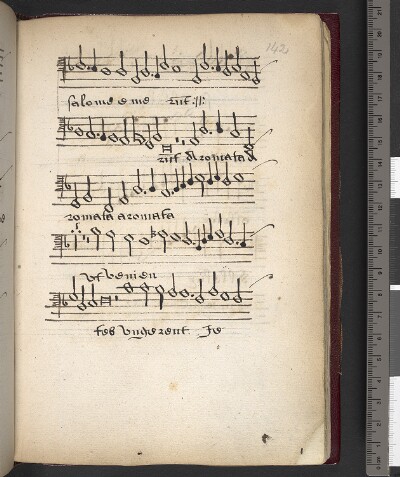 142
salome e me rūt :||:
rūt aromata a
romata aromata
vt venien
tes vngerent Je